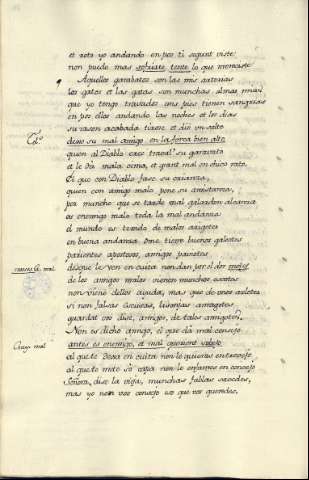 et esto yo andando en pos ti segunt viste
non puede mas sofrirte tente lo que mereciste
Aquellos garabatos son las mis arterias
los gatos et las gatas son munchas almas mias
que yo tengo travadas mis pies tienen sangrias
en pos ellas andando las noches et los dias
su rason acabada tirose et dio un salto
dexo su mal amigo en la forca bien alto
quien al Diablo cree travał su garavato
el le dá mala cima, et grant mal en chico rato.
El que con Diablo fase su crianza,
quien con amigo malo pone su amistanza,
por muncho que se tarde mal galardon alcanza
es enemigo malo toda la mal andanza
el mundo es texido de malos arigotes
en buena andanza ome tiene buenos galeotes
parientes apostizos, amigos paviotes
desque le ven en cuita non dan por el dos
de los amigos malos vienen munchos escotes
non viene dellos aiuda, mas que de unos arlotes
si non falsas escusas, lisonjas amargotes
guardat vos dise, amigos, de tales amigotes
Non es dicho amigo, el que dá mal consejo
antes es enemigo, et mal queriente sobejo
al que te dexa en cuita non le quieras en trebejo
al que te mata so capa non le enfiames en consejo
Señora, dise la vieja, munchas fablas savedes,
mas yo non vos consejo eso que vos queredes.
mal
mal